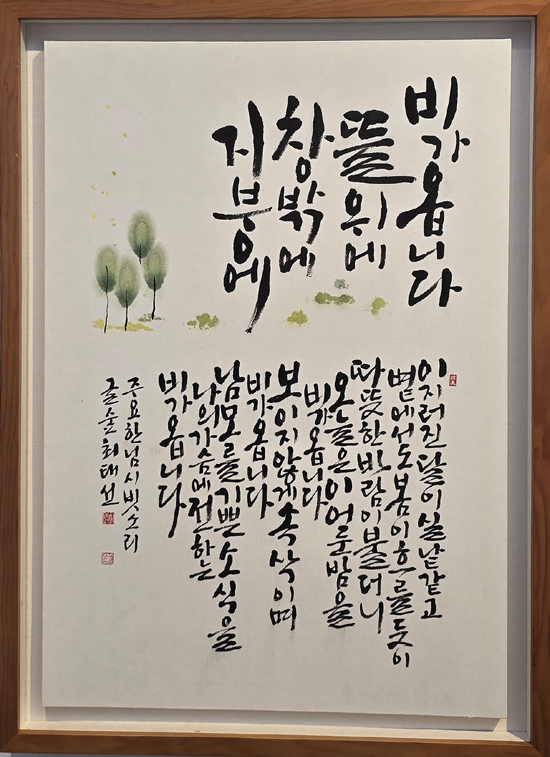 비가 옵니다
뜰 위에
창밖에
지붕에
이지러진 달이 실낱같고
볕에서도 봄이 흐를 듯이
따뜻한 바람이 불더니
오늘은 이 어둔 밤을
비가 옵니다
보이지 않게 속삭이며
비가 옵니다
남 모를 기쁜 소식을
나의 가슴에 전하는
비가 옵니다
주요한님 시 빗소리
글술 최태선